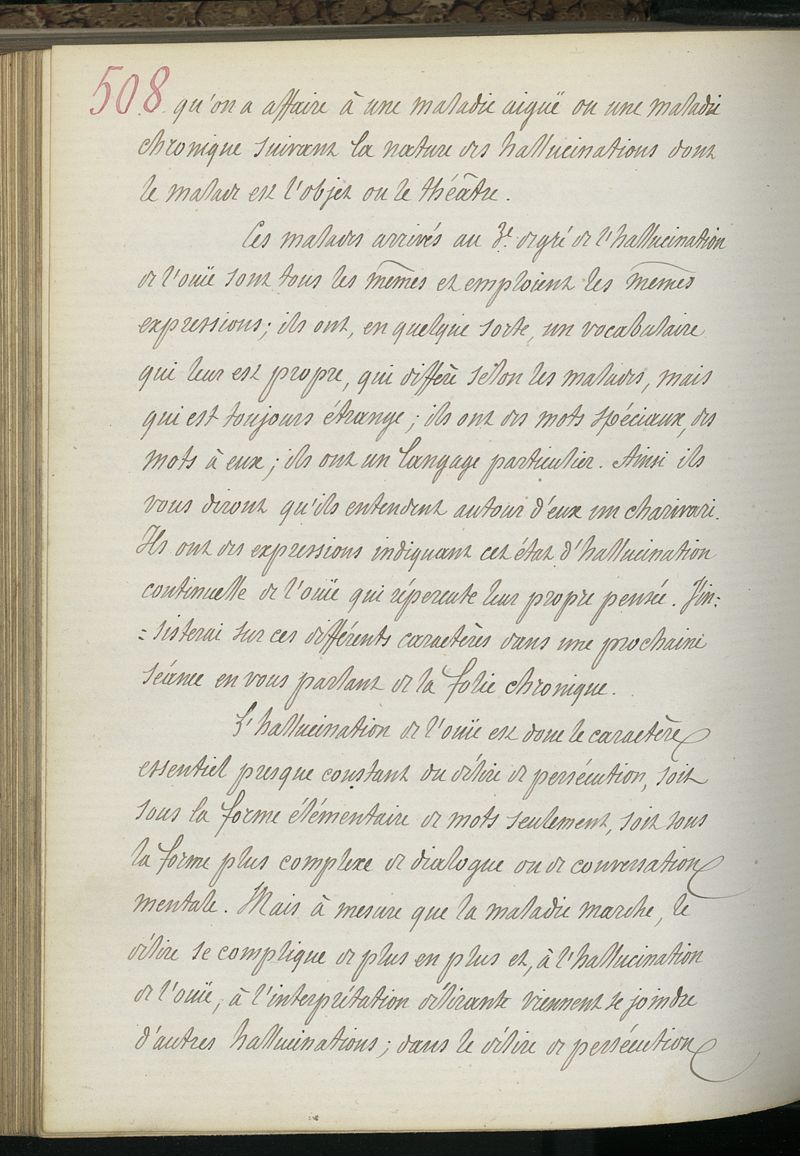 508
qu'on a affaire à une maladie aiguë ou une maladie
chronique suivant la nature des hallucinations dont
le malade est l'objet ou le théâtre.
Ces malades arrivés au 3e degré de l'hallucination
de l'ouïe sont tous les mêmes et emploient les mêmes
expressions; ils ont, en quelque sorte, un vocabulaire
qui leur est propre, qui diffère selon les malades, mais
qui est toujours étrange; ils ont des mots spéciaux, des
mots à eux; ils ont un langage particulier. Ainsi ils
vous diront qu'ils entendent autour d'eux un charivari.
Ils ont des expressions indiquant cet état d'hallucination
continuelle de l'ouïe qui répercute leur propre pensée. J'in=
=sisterai sur ces différents caractères dans une prochaine
séance en vous parlant de la folie chronique.
L'hallucination de l'ouïe est donc le caractère
essentiel presque constant du délire de persécution, soit
sous la forme élémentaire de mots seulement, soit sous
la forme plus complexe de dialogue ou de conversation
mentale. Mais à mesure que la maladie marche, le
délire se complique de plus en plus et, à l'hallucination
de l'ouïe, à l'interprétation délirante viennent se joindre
d'autres hallucinations; dans le délire de persécution